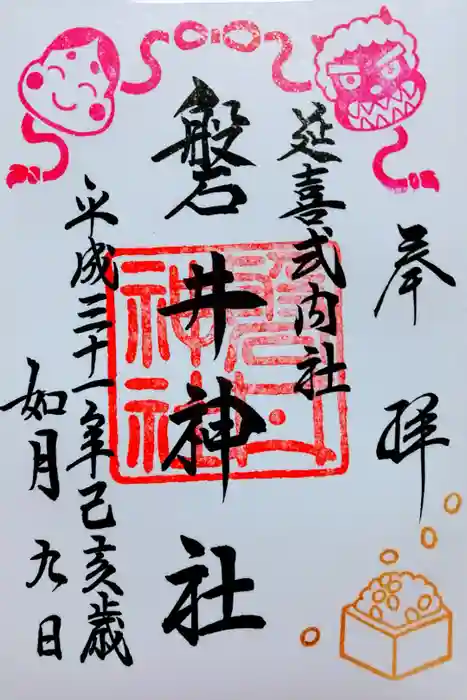 奉拝
延喜式内社
磐井神社
平成三十一年己亥歳
如月九日